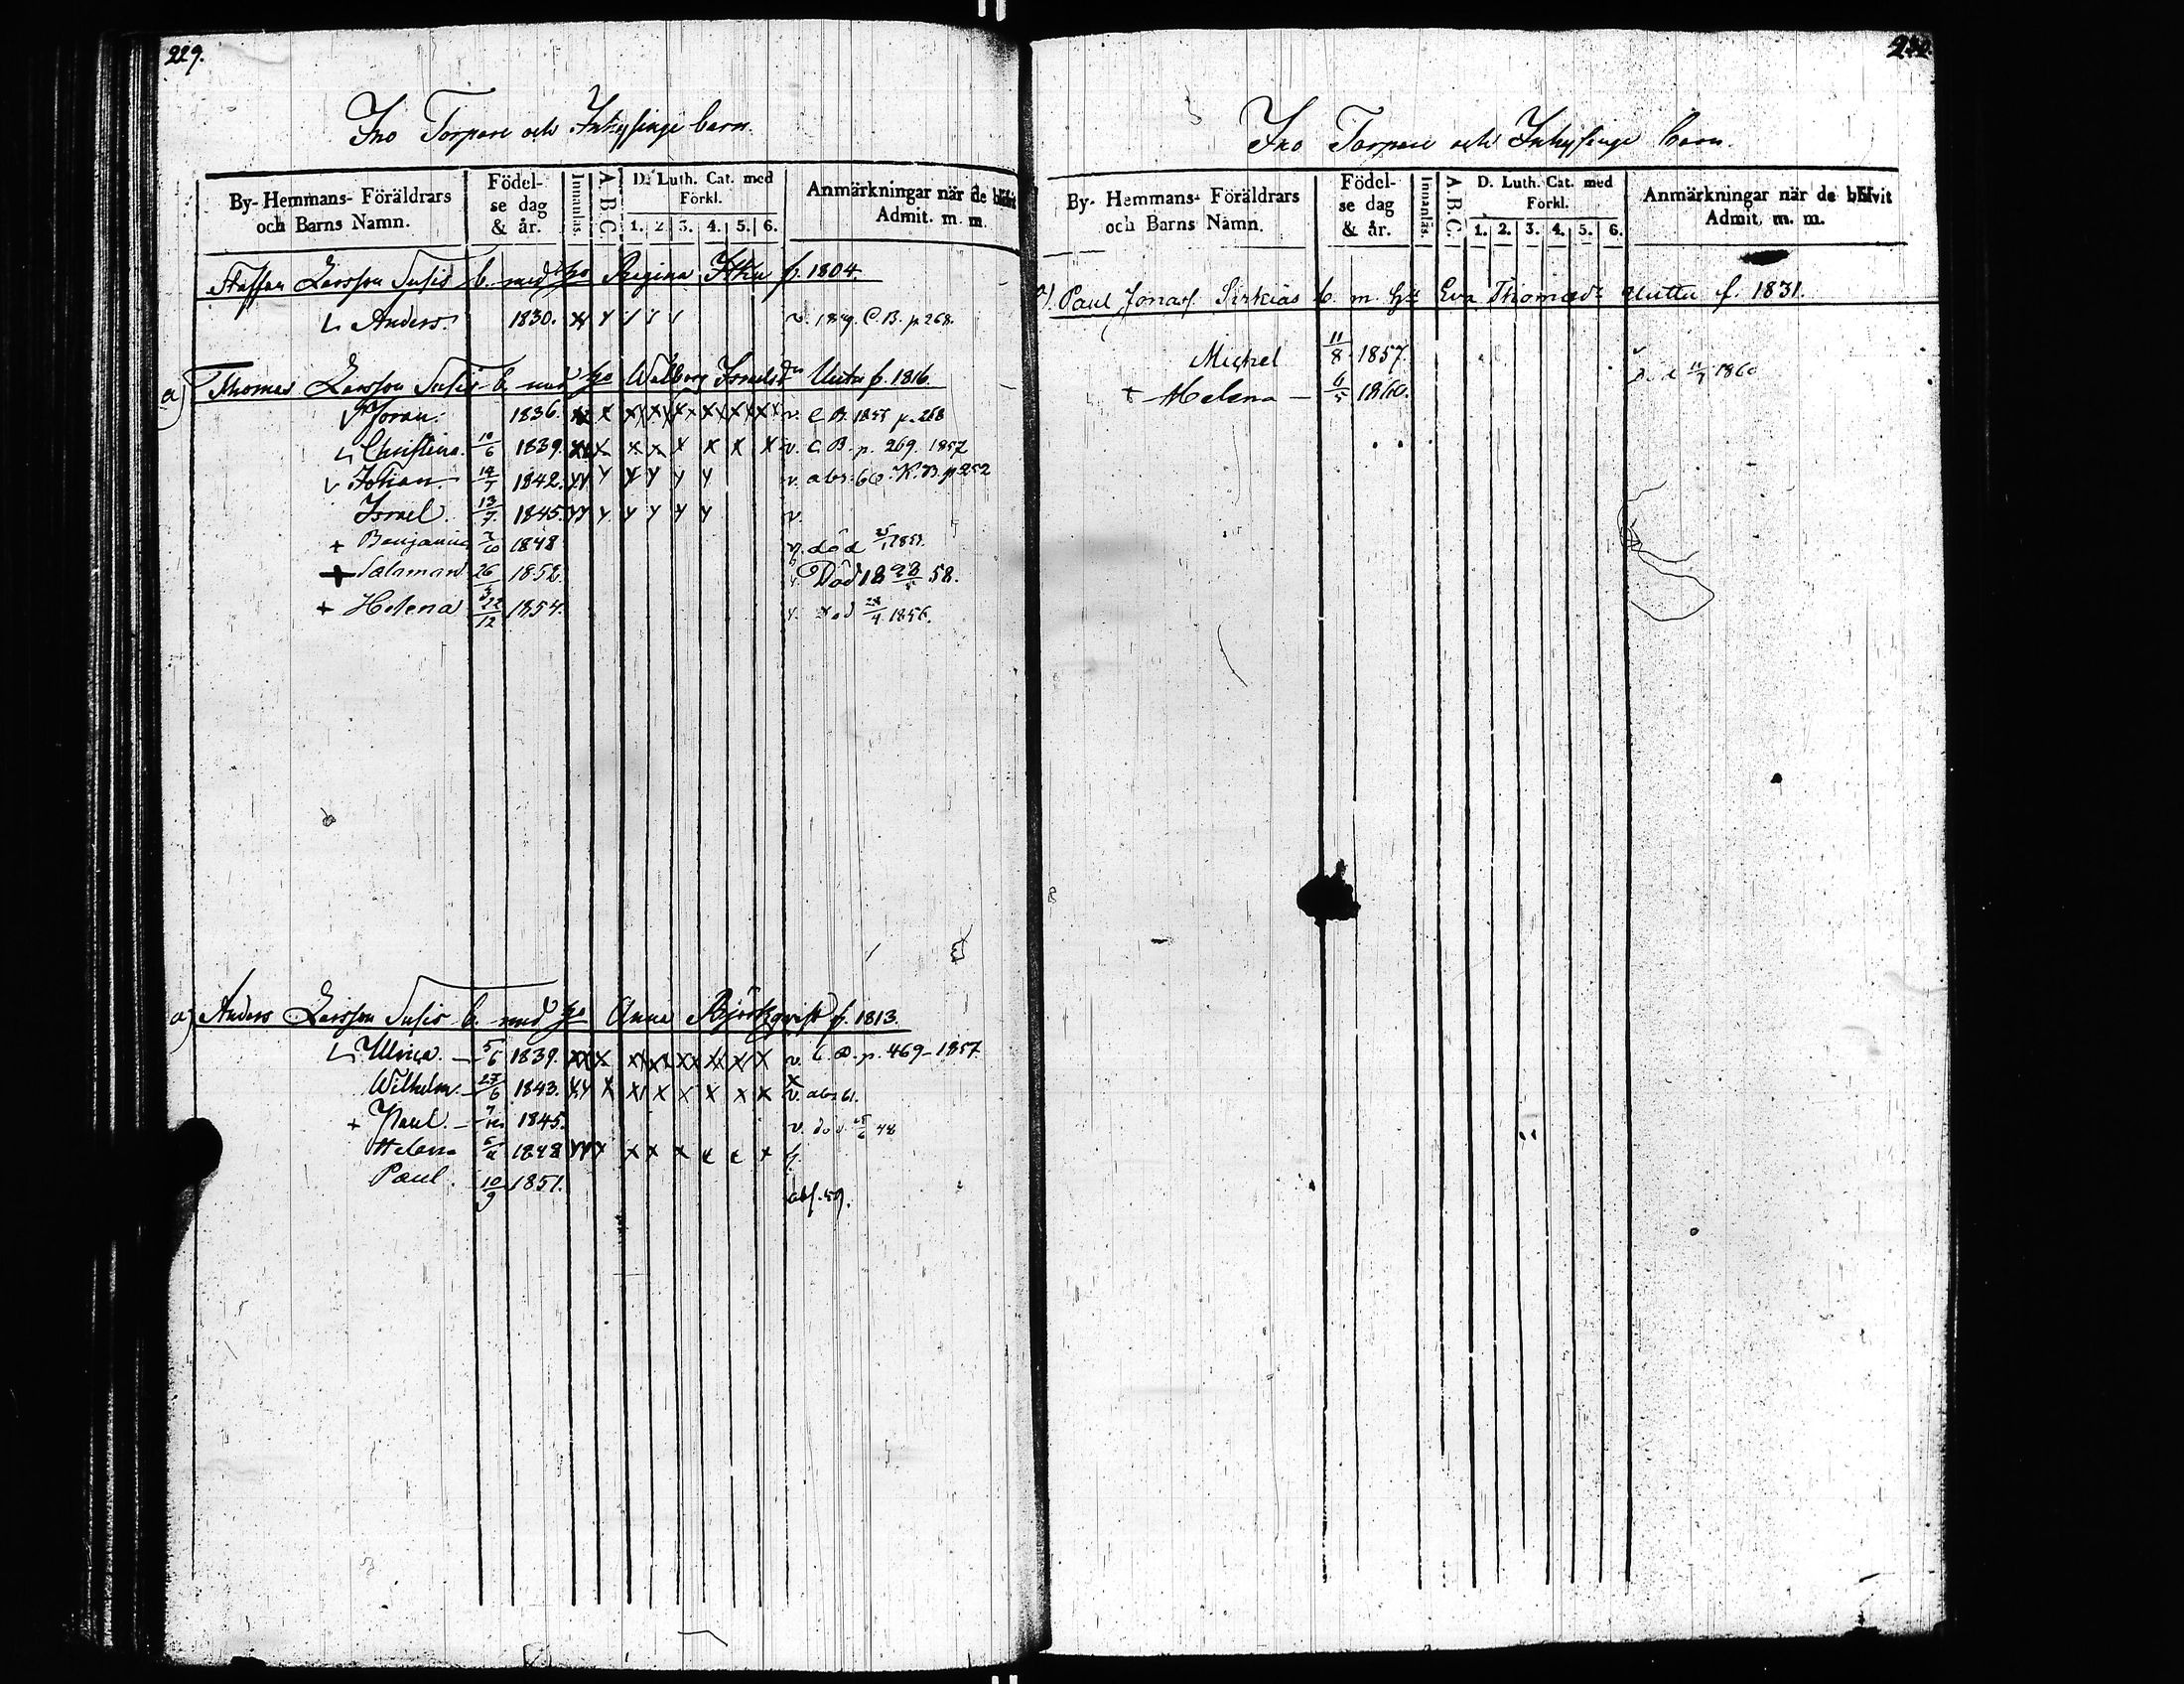 229.
Ino Torpare och Inhysinge barn.
By- Hemmans- Föräldrars och Barns Namn.
Födel-se dag & år.
Innanläs.
A.B.C.
D. Luth. Cat. med Förkl.
1. 2. 3. 4. 5. 6.
Anmärkningar när de blifvit Admit. m. m.
Staffan Larsson Susis b. med ho Regina f. 1804.
Anders. 1830. v. C. B. p. 268.
a) Thomas Larsson Susis b. med ho Walborg Israelsdr f. 1816.
Jöran. 1836. v. C B. p. 268
Christina. 10/6 1839. v. C. B. p. 269. 1857
Johan 14/7 1842. v. abs. 60. K. B. p 252
Israel. 13/7 1845. v.
+ Benjamin 1848 v. död
+ Salamon 26/3 1852. Död 18 28/5 58.
+ Helena 22/12 1854. död 1856.
a) Anders Larsson Susis b. med ho Anna Björkqvist f. 1813.
Ulrica. 5/6 1839. v. C. B. p. 469 - 1857
Wilhelm. 27/6 1843. v. abs 61.
+ Paul. 1845. v. död 48
Helena 1848
Paul. 10/9 1851. abs. 59.
230.
Ino Torpare och Inhysinge barn.
By- Hemmans- Föräldrars och Barns Namn.
Födel-se dag & år.
Innanläs.
A.B.C.
D. Luth. Cat. med Förkl.
1. 2. 3. 4. 5. 6.
Anmärkningar när de blifvit Admit. m. m.
Paul Jonass. Sirkiäs b. m. Eva Thomasdr f. 1831.
Michel 11/8 1857.
+ Helena 6/5 1860. 1860